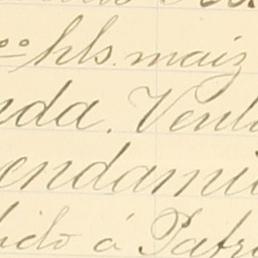 oo hls. maiz
nda. Vent
endami
bido á Patr